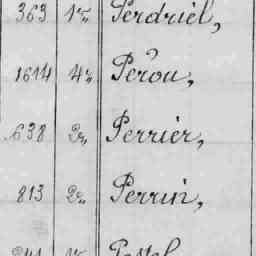 363 1re Perdriel,
1614 4e Pérou,
638 2e Perrier,
813 2e Perrin,